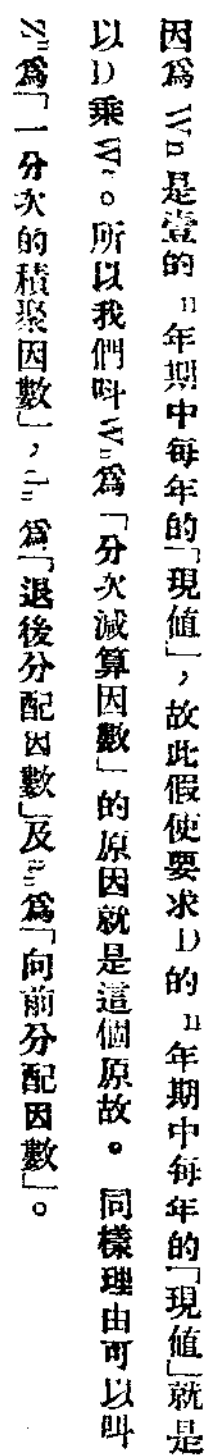 因爲 Wn 是壹的 n 年期中每年的「現値」，故此假使要求 D 的 n 年期中每年的「現値」就是
以 D 乘 Wn。所以我們呌 Wn 爲「分次減算因數」的原因就是這個原故。 同樣理由可以呌
爲「一分次的積聚因數」， 爲「退後分配因數」及 爲「向前分配因數」。